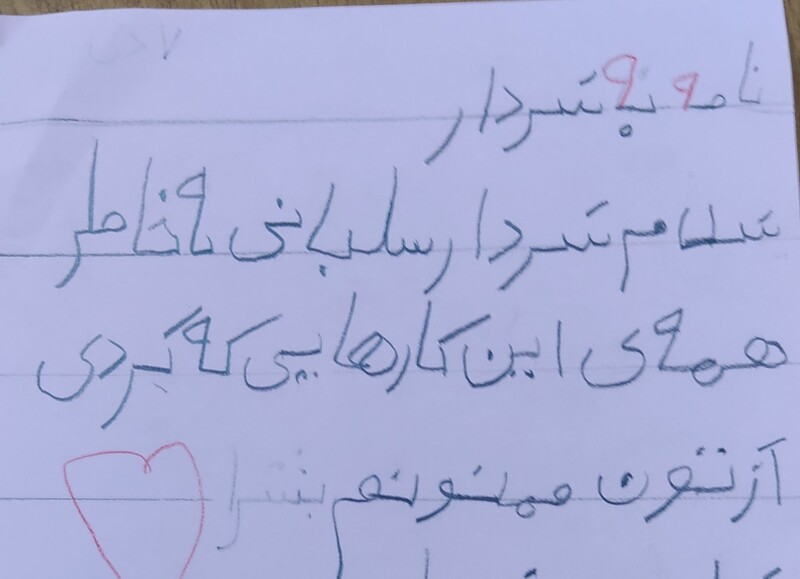 نامه به سردار
سلام سردار سلیمانی به خاطر
همه‌ی این کارهایی که کردی
ازتون ممنونم